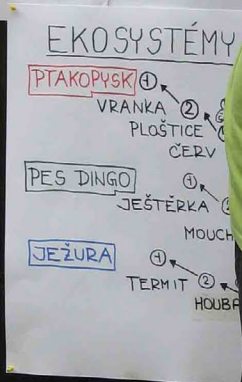 EKOSYSTÉMY
PTAKOPYSK 1
VRANKA 2
PLOŠTICE
ČERV
PES DINGO
1
JEŠTĚRKA
MOUCH
JEŽURA
1
TERMIT 2
HOUB